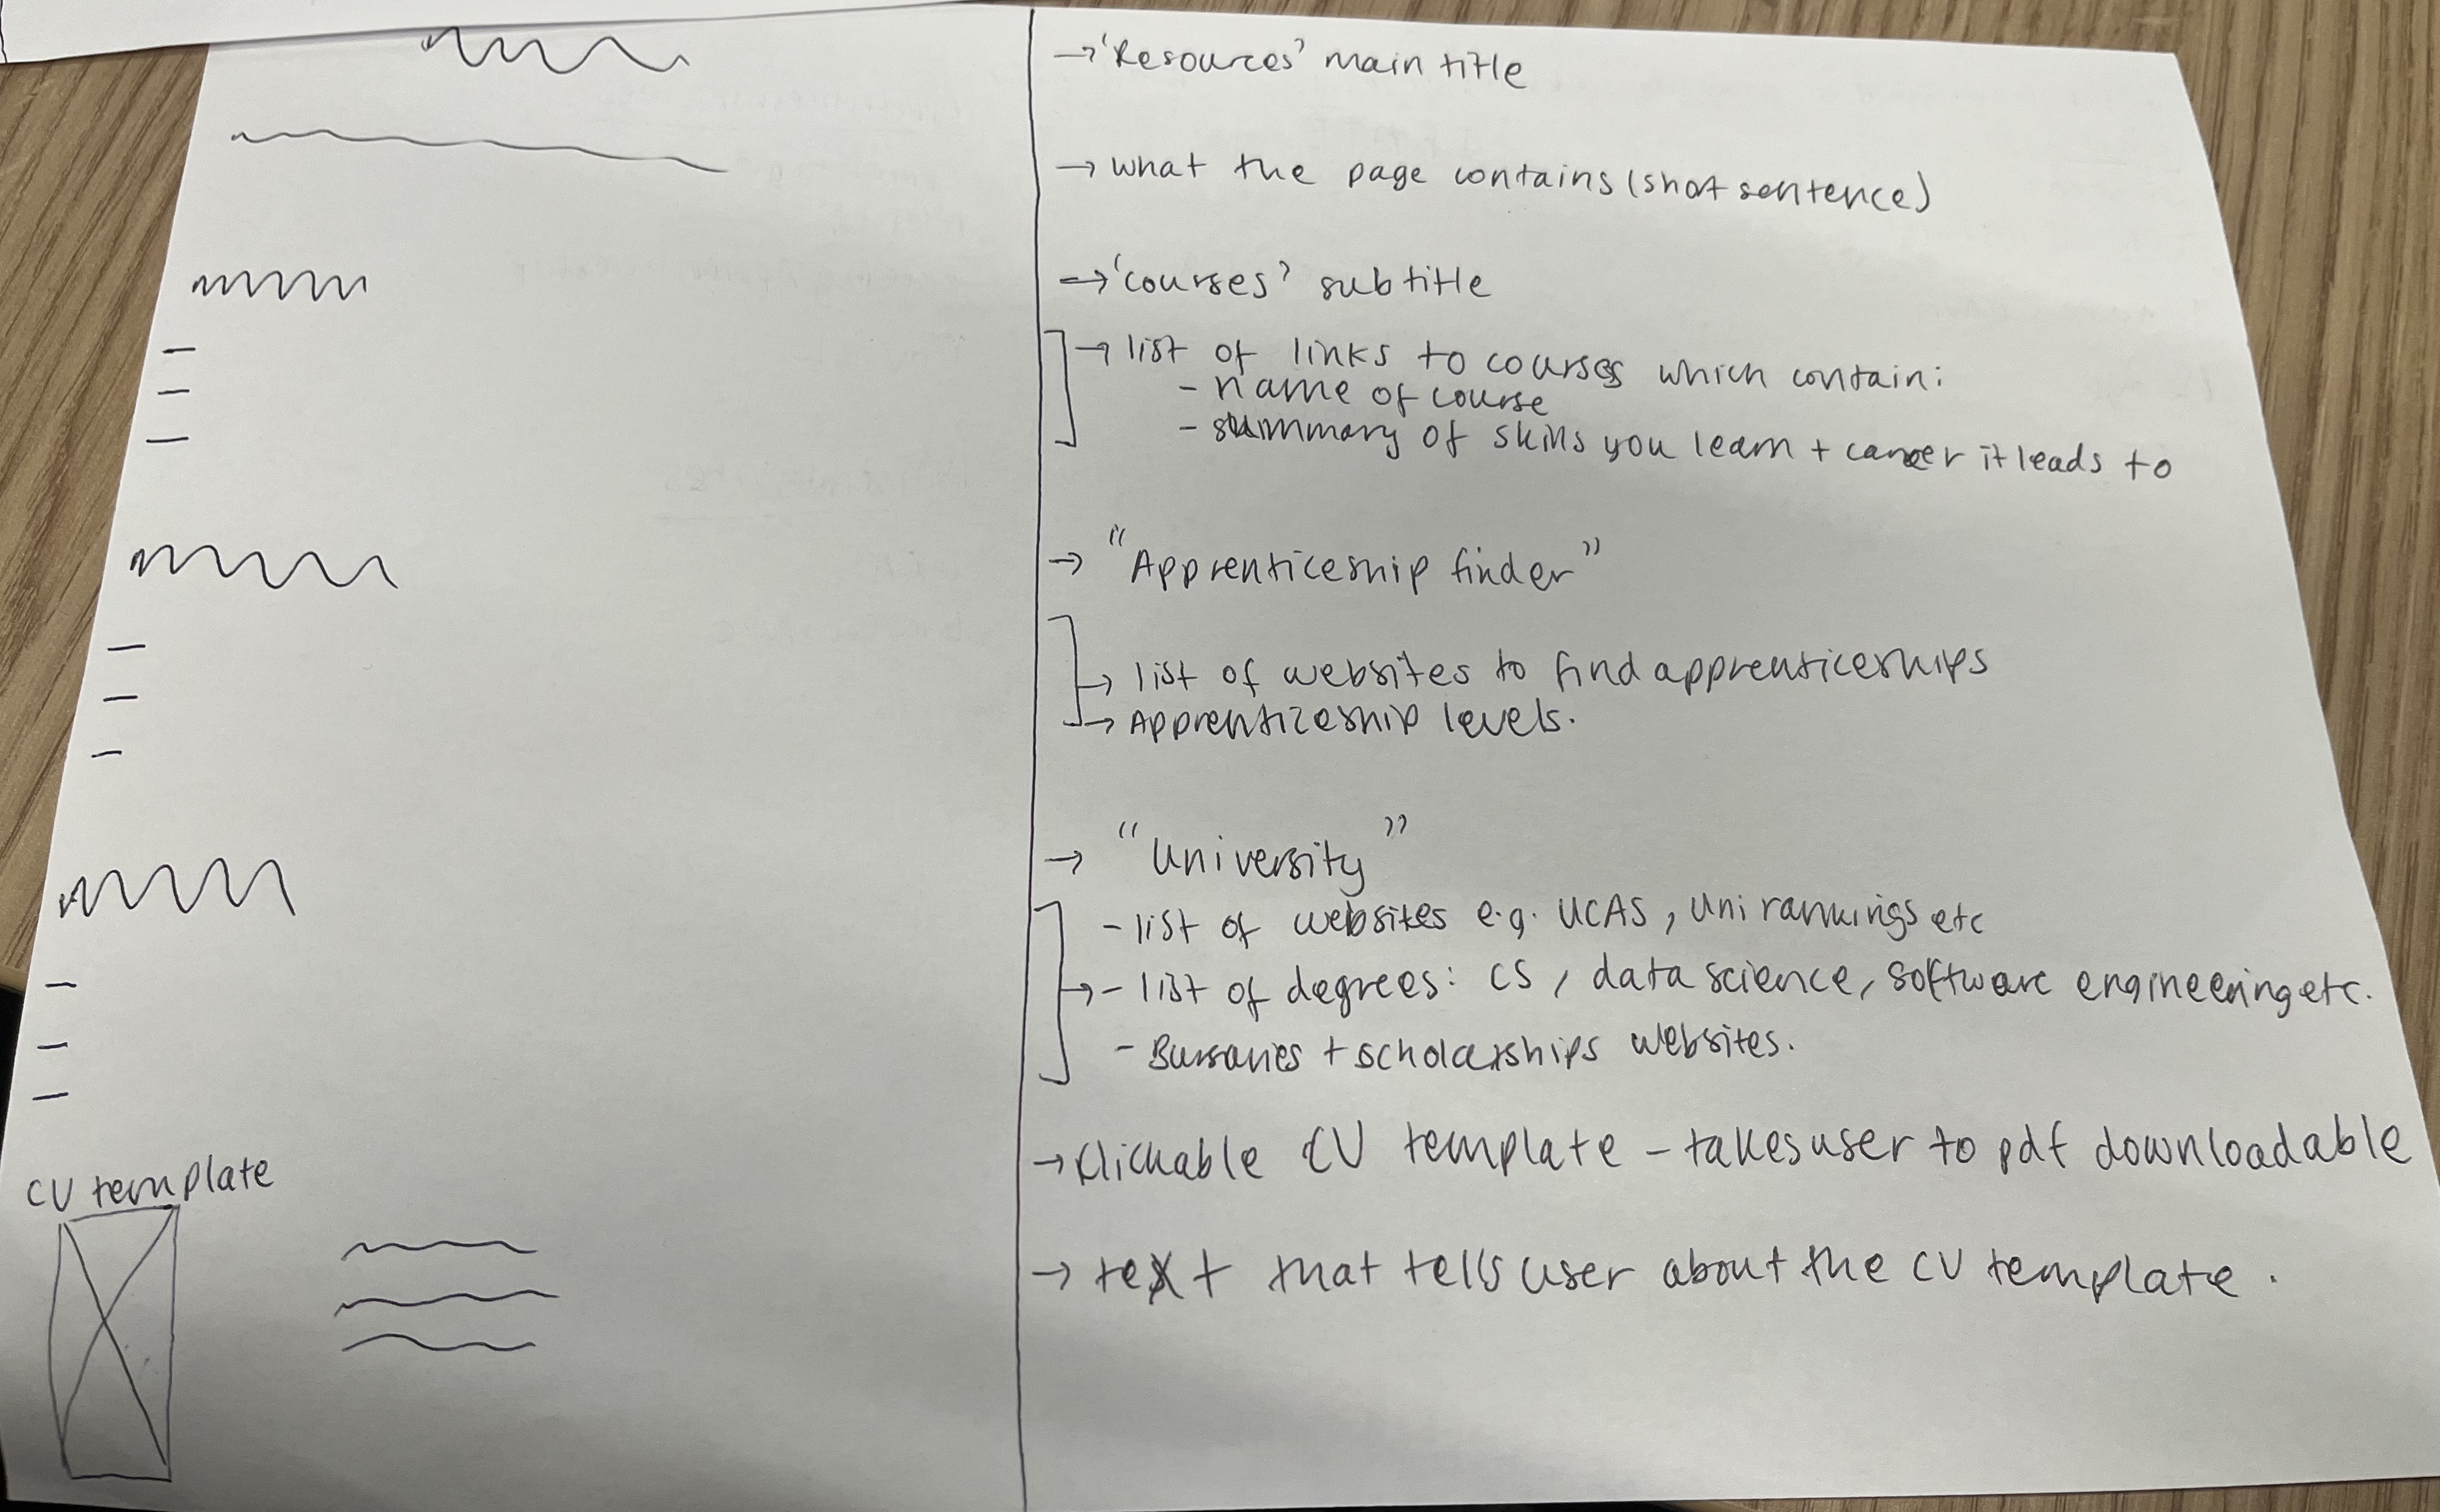 → 'Resources' main title
→ what the page contains (short sentence)
→ 'courses' subtitle
→ list of links to courses which contain:
- name of course
- summary of skills you learn + career it leads to
→ "Apprenticeship finder"
→ list of websites to find apprenticeships
→ Apprenticeship levels.
→ "University"
- list of websites e.g. UCAS, Uni rankings etc
→ - list of degrees: CS, data science, software engineering etc.
- Bursaries + scholarships websites.
→ Clickable CV template - takes user to pdf downloadable
CV template
→ text that tells user about the CV template.